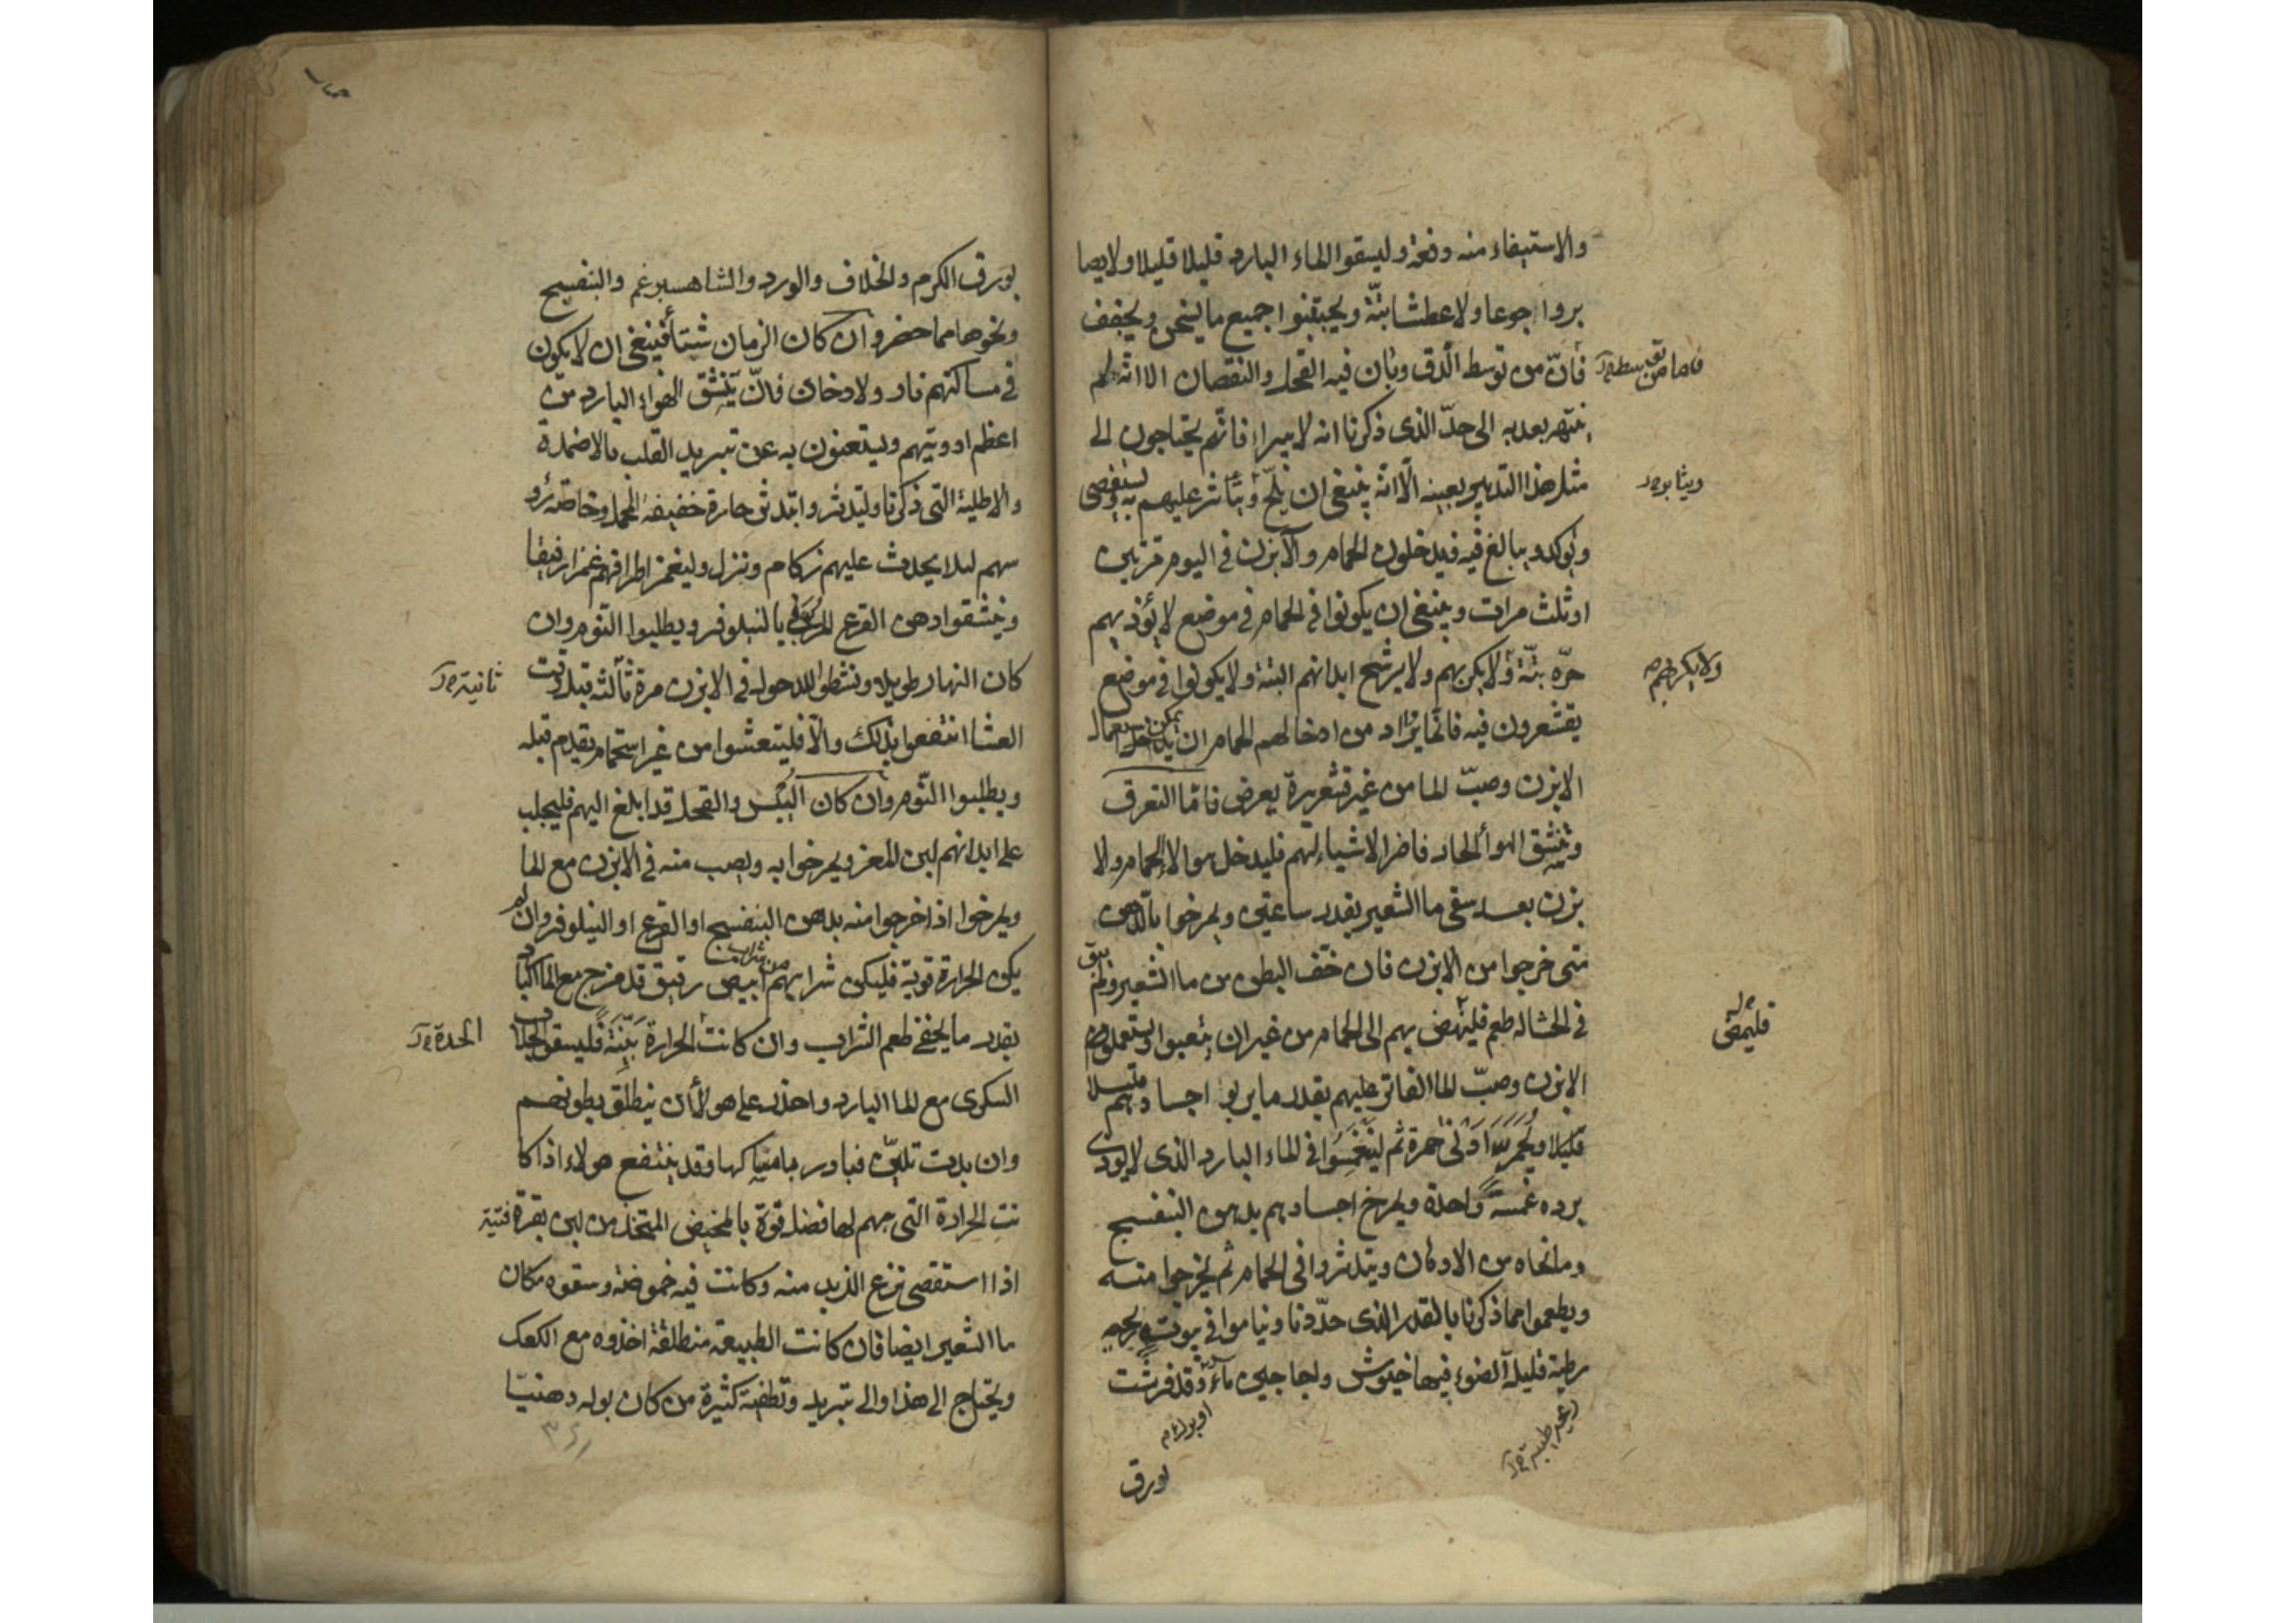 والاستيفاء منه دفعة وليسقوا الماء البارد قليلا قليلا ولا يصا
بروا جوعا ولا عطشا بتّة ويجتنبوا جميع ما يسخن ويجفف
فأنّ من توسط الدق وبان فيه القحل والنقصان الا انه لم
ينته بعد به الى حدّ الذى ذكرنا انه لا يبرا فانهم يحتاجون الى
مثل هذا التدبير بعينه الّا انّه ينبغى ان يلحّ و عليهم به ويستقصى
ويوكد ويبالغ فيه فيدخلون الحمام والآبزن فى اليوم مرتين
او ثلث مرات وينبغى ان يكونوا فى الحمام فى موضع لا يؤذيهم
حرّه بتّة ولا يكربهم ولا يرشح ابدانهم البتة ولا يكونوا فى موضع
يقشعرون فيه فانما يراد من ادخالهم الحمام ان يمكن استعمال
الابزن وصبّ الما من غير قشعريرة يعرض فامّا التعرق
وتنشق الهوأ الحار فاضر الاشياء لهم فليدخل هولاء الحمام والا
بزن بعد سقى ما الشعير بقدر ساعتين ويمرخوا بالدهن
متى خرجوا من الابزن فان خفف البطن من ما الشعير ولم يبق
فى الجشا له طعم فلينهض بهم الى الحمام من غير ان يتعبوا ويستعملوا
الابزن وصبّ الما الفاتر عليهم بقدر ما يربو اجسادهم قليلا
قليلا ويحمر ادنى حمرة ثم لينغمسوا فى الماء البارد الذى لا يوذى
برده غمسة واحدة ويمرخ اجسادهم بدهن البنفسج
وما نحاه من الادهان ويتدثروا فى الحمام ثم يخرجوا منه
ويطعموا مما ذكرنا بالقدر الذى حدّدنا ويناموا فى بيوت
رطبة قليلة الضوء فيها خيوش واجاجين ماء وقد فرشت
فاما من توسط
ولا يكربهم
فليمض
بورق
بورق الكرم والخلاف والورد والشاهسبرغم والبنفسج
ونحوها مما حضر وان كان الزمان شتأ فينبغى ان لا يكون
فى مساكنهم نار ولا دخان فانّ تنشق الهواء البارد من
اعظم ادويتهم ويستغنون به عن تبريد القلب بالاضمدة
والاطلية التى ذكرنا وليتدثروا بدثر حارة خفيفة المحمل وخاصة رو
سهم ليلا يحدث عليهم زكام ونزل وليغمز اطرافهم غمزا رفيقا
وينشقوا دهن القرع المربى بالنيلوفر ويطلبوا النوم وان
كان النهار طويلا ونشطوا للدخول فى الابزن مرة ثالثة قبل وقت
العشا انتفعوا بذلك والّا فليتعشوا من غير استحمام يقدم قبله
ويطلبوا النّوم وان كان اليبس والقحل قد ابلغ اليهم فليحلب
على ابدانهم لبن المعز ويمرخوا به ويصب منه فى الابزن مع الما
ويمرخوا اذا خرجوا منه بدهن البنفسج او القرع او النيلوفر وان لم
يكن الحرارة قوية فليكن شرابهم من شراب ابيض رقيق قد مزج مع الما البارد
بقدر ما يخفى طعم الشراب وان كانت الحرارة بيّنة فليسقوا الجلاب
السكرى مع الما البارد واحذر على هولأ ان ينطلق بطونهم
وان بدت تلين فبادر بامساكها وقد ينتفع هولاء اذا كا
نت الحرارة التى بهم لها فضل قوة بالمخيض المتخذ من لبن بقرة فتية
اذا استقصى نزع الزبد منه وكانت فيه حموضة وسقوه مكان
ما الشعير ايضا فان كانت الطبيعة منطلقة اخذوه مع الكعك
ويحتاج الى هذا والى تبريد وتطفية كثيرة من كان بوله دهنيّا
ثانية
الحدة